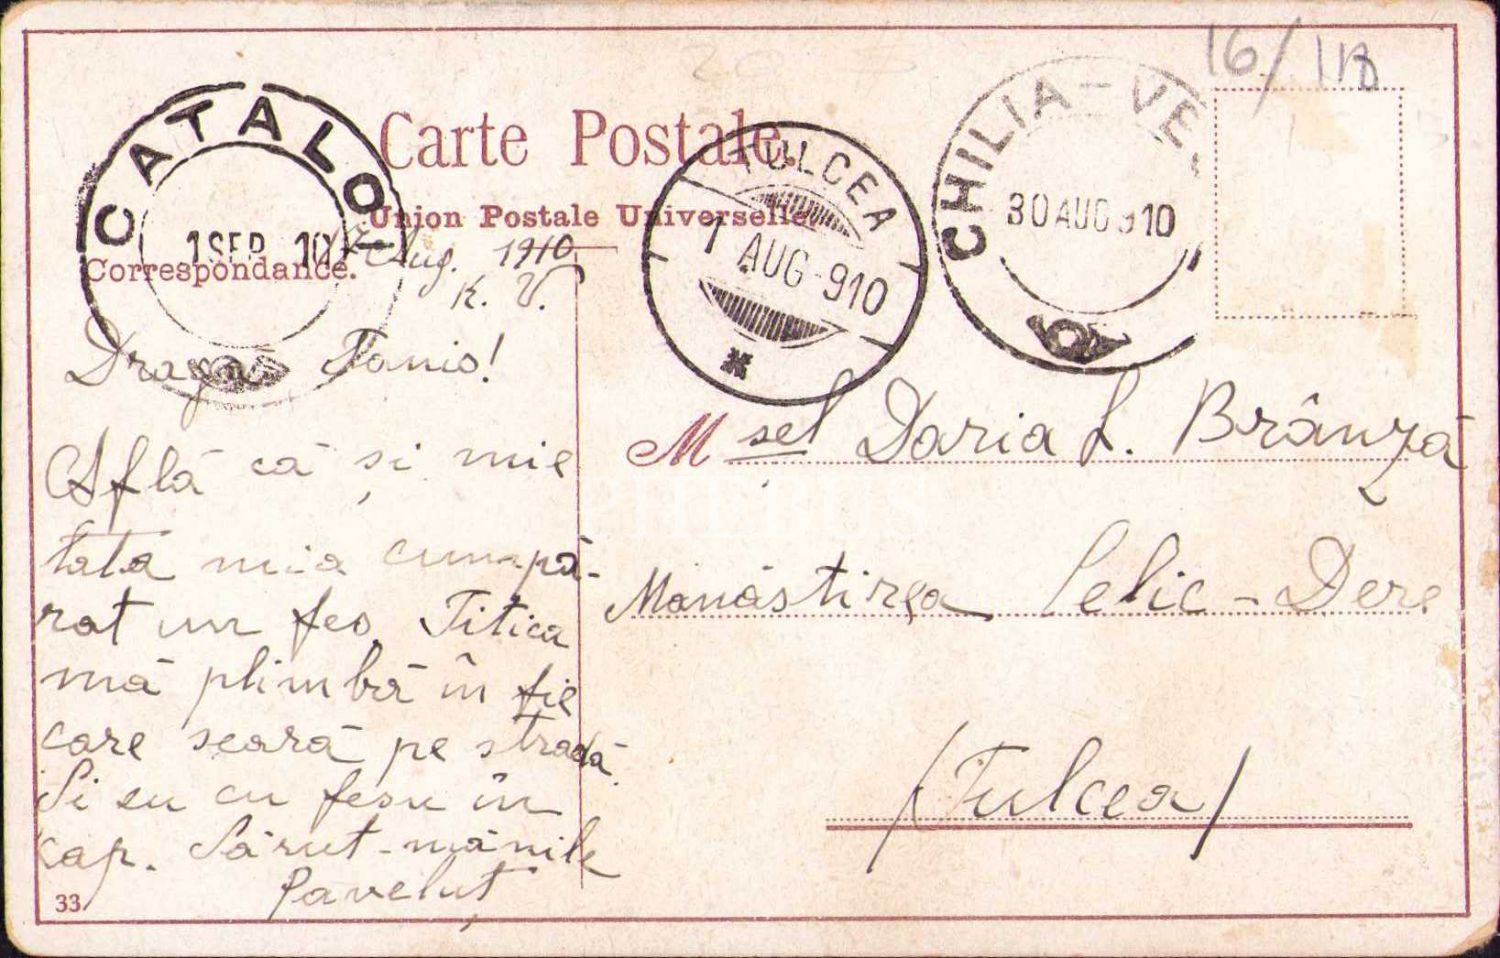 16/118
Carte Postale.
Union Postale Universelle
Correspondance.
CATALOI
1 SEP. 10
TULCEA
1 AUG 910
CHILIA-VE
30 AUG 910
Aug. 1910
K. V.
Dragă Tanio!
Află că și mie
tata mia cumpă-
rat un fes. Titica
mă plimbă în fie
care seară pe stradă.
Și eu cu fesu în
cap. Sărut-mânile
Paveluț
33
Msel Daria L. Brânză
Manăstirea Celic-Dere
(Tulcea)